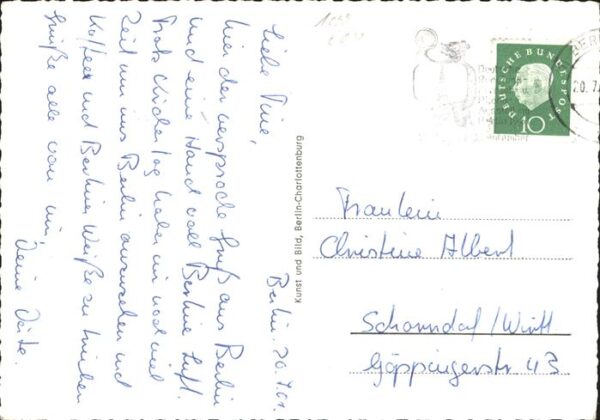 Berlin. 20.7.61
Liebe Tine,
hier der versproche Gruß aus Berlin
und eine Hand voll Berliner Luft.
Trotz Kirchentag haben wir noch viel
Zeit um uns Berlin anzusehen und
Kaffee und Berliner Weiße zu trinken
Grüße alle von mir,
Deine Dörte.
Kunst und Bild, Berlin-Charlottenburg
DEUTSCHE BUNDESPOST
10
BERLIN
20.7.
Fräulein
Christine Albert
Schorndorf/Württ
Göppingerstr 43